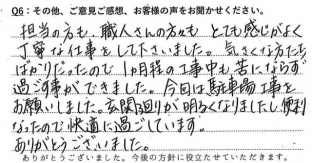 Q6：その他、ご意見ご感想、お客様の声をお聞かせください。
担当の方も、職人さんの方々も とても感じがよく
丁寧な仕事をして下さいました。気さくな方たち
ばかりだったので 1ヶ月程の工事中も苦にならず
過ごす事ができました。今回は駐車場工事を
お願いしました。玄関廻りが明るくなりましたし、便利
なったので快適に過ごしています。
ありがとうございました。
ありがとうございました。今後の方針に役立たせていただきます。